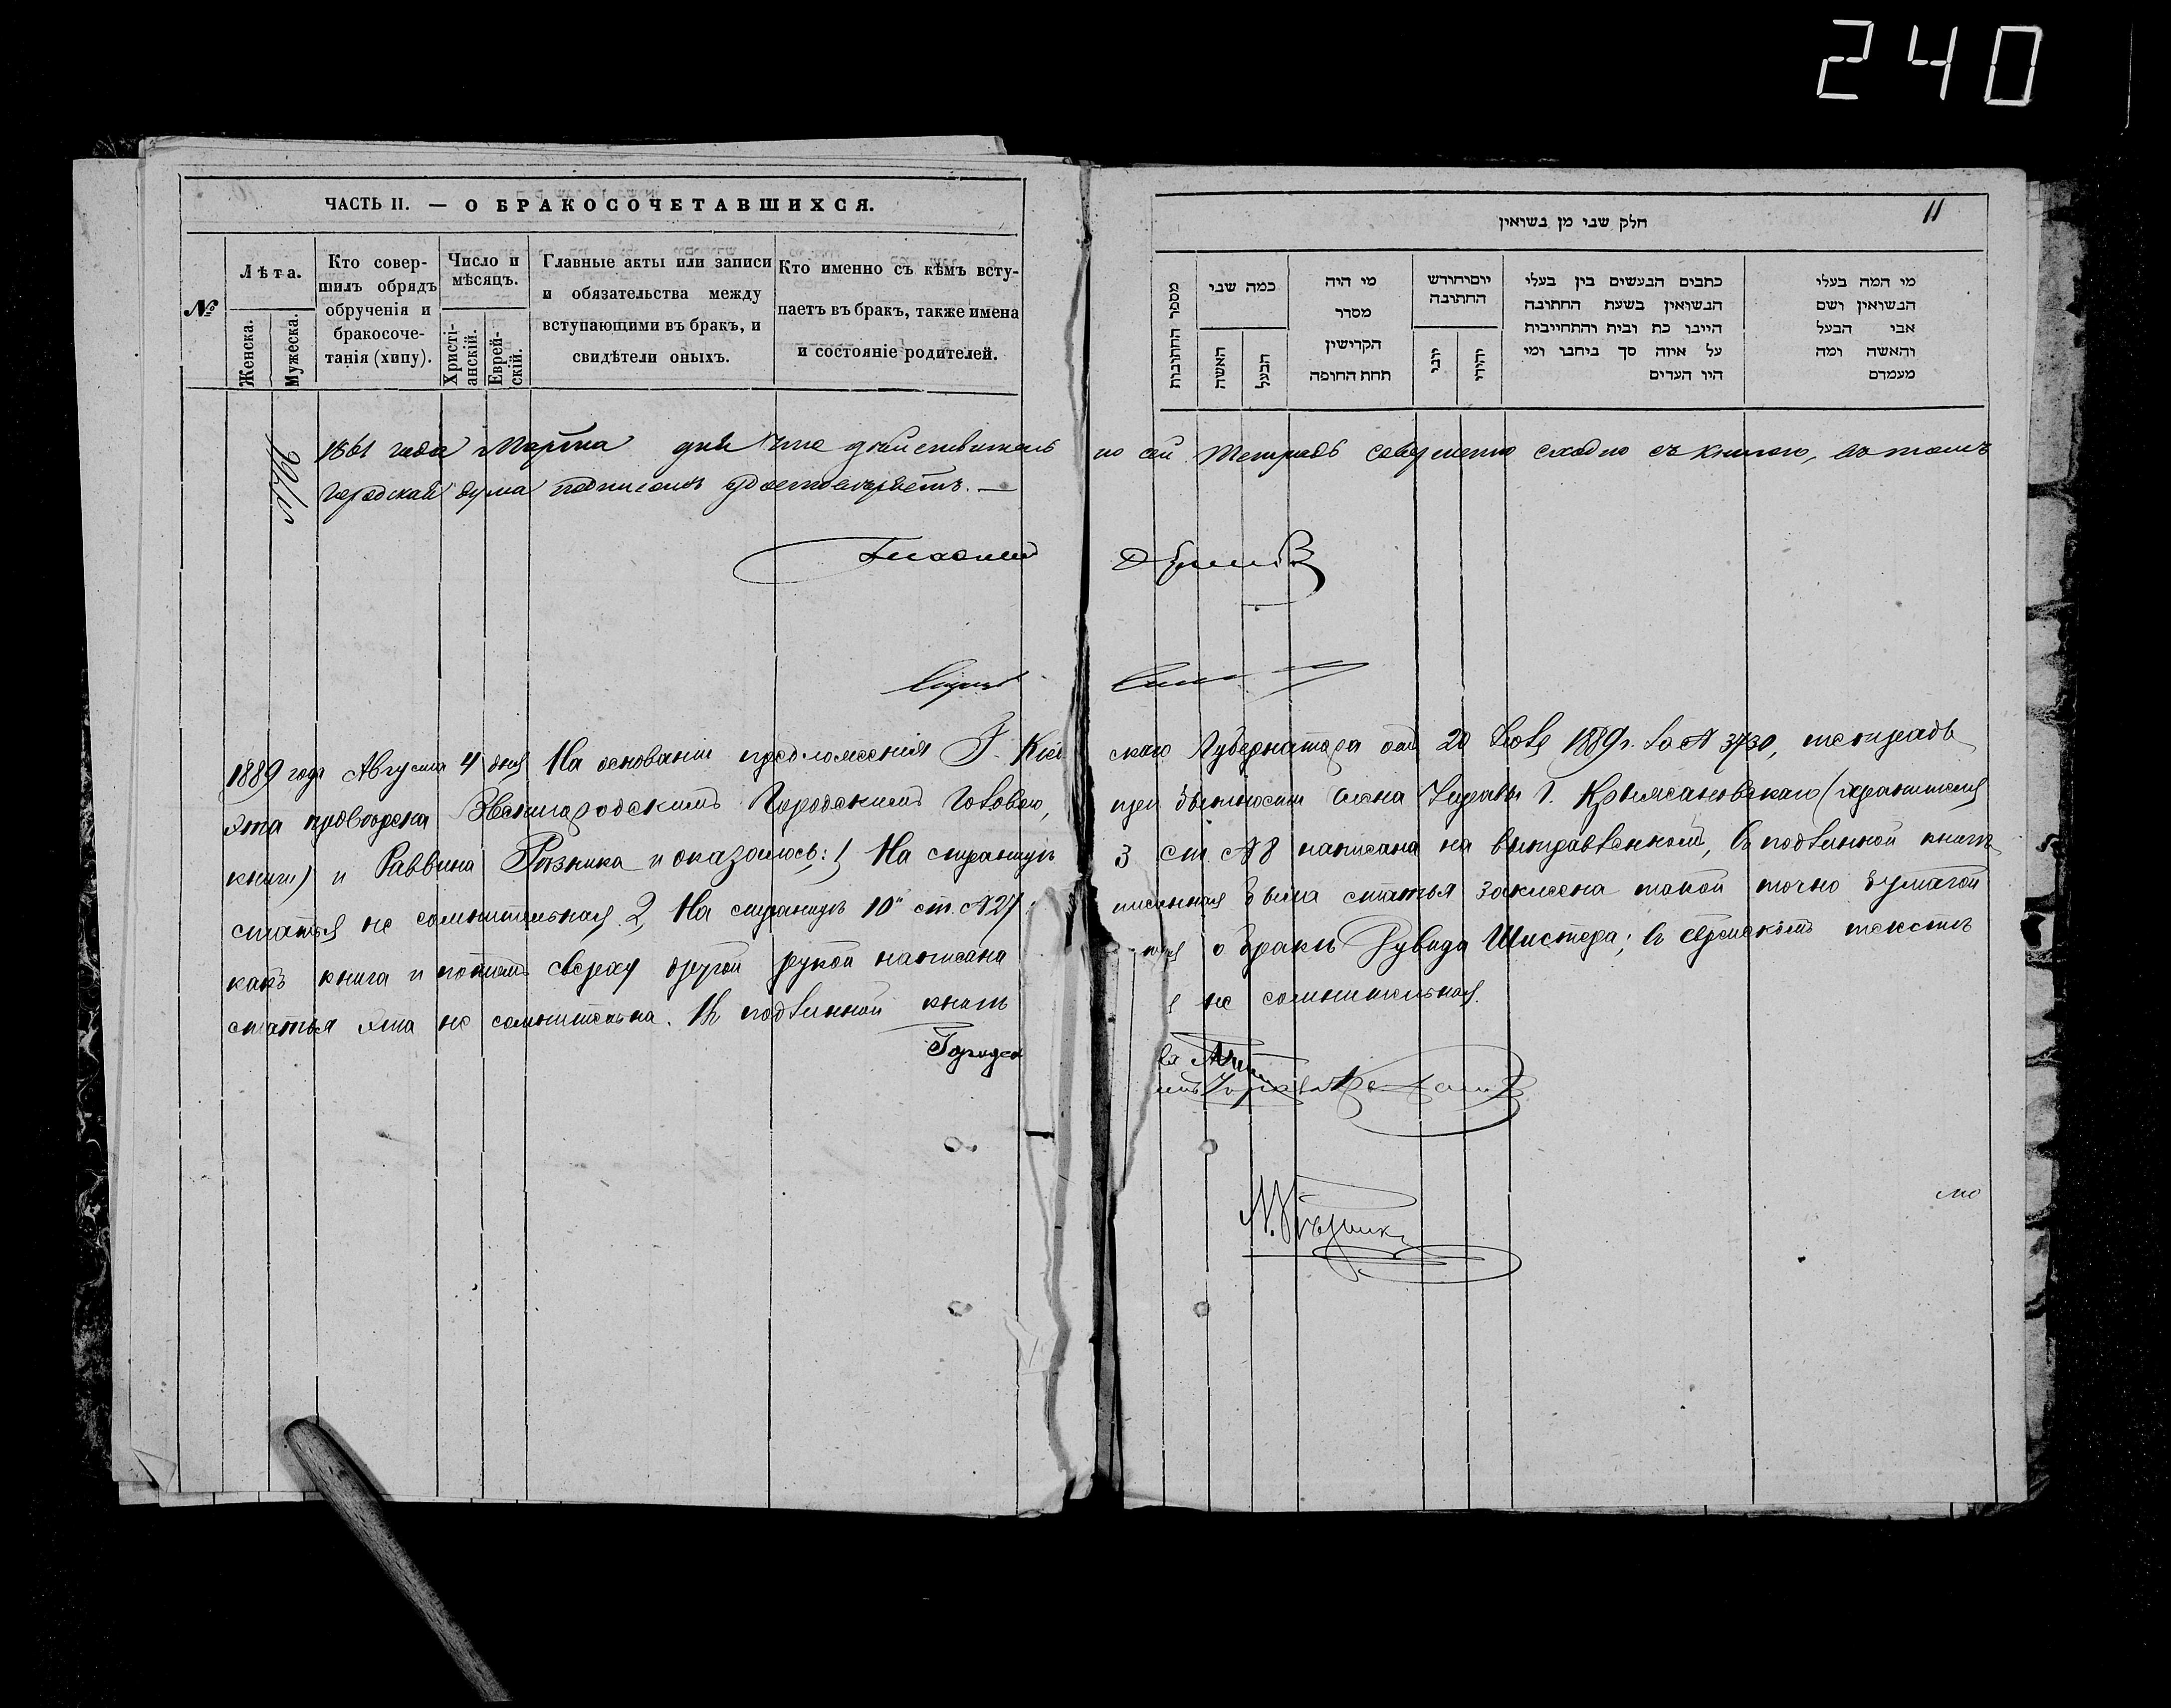 240
ЧАСТЬ II. — О БРАКОСОЧЕТАВШИХСЯ.
№
Лѣта.
Женска.
Мужеска.
Кто совер-
шилъ обрядъ
обрученія и
бракосоче-
танія (хипу).
Число и
мѣсяцъ.
Христі-
анскій.
Еврей-
скій.
Главные акты или записи
и обязательства между
вступающими въ бракъ, и
свидѣтели оныхъ.
Кто именно съ кѣмъ всту-
паетъ въ бракъ, также имена
и состояніе родителей.
11
חלק שני מן נשואין
מספר החתונות
כמה שני
האשה
הבעל
מי היה
מסדר
הקדישין
תחת החופה
יום וחודש
החתונה
יוני
יהודי
כתבים הנעשים בין בעלי
הנשואין בשעת החתונה
היינו כת ובית והתחייבית
על איזה סך ביחנו ומי
היו העדים
מי המה בעלי
הנשואין ושם
אבי הבעל
והאשה ומה
מעמדם
1861 года Марта дня что действительно сія тетрадь совершенно сходно съ книгою, въ томъ
Городская дума подписомъ удостовѣряетъ. —
1889 года Августа 4 дня На основаніи предложенія Г. Кіев скаго Губернатора отъ 20 Іюля 1889 г. за № 3730, тетрадь
эта провѣрена Звенигородскимъ Городскимъ Головою, при бытности члена Управы Г. Крыжановскаго (хранителя
книги) и Раввина Рѣзника и оказалось: 1, На страницѣ 3 ст. № 8 написана на выправленной, въ подлинной книгѣ
статья не сомнительная. 2, На страницѣ 10й ст. № 27 писанная была статья заклеена такой точно бумагой
какъ книга и потомъ сверху другой рукой написана о бракѣ Рувида Шистера; въ еврейскомъ текстѣ
статья эта не сомнительна. Въ подлинной книгѣ не сомнительная.
Городск